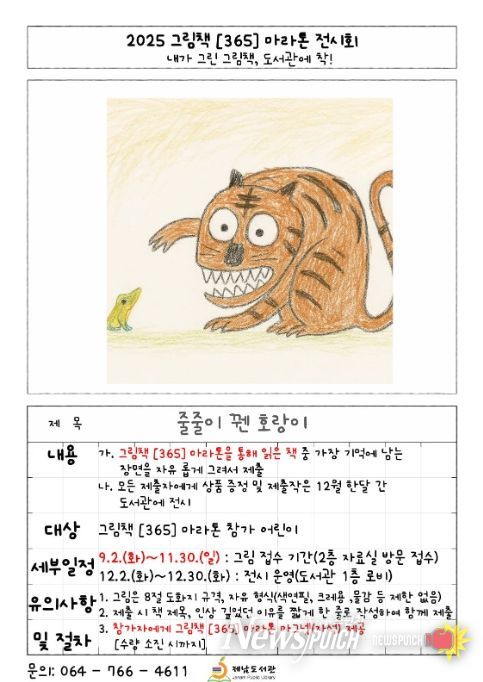 2025 그림책 [365] 마라톤 전시회
내가 그린 그림책, 도서관에 착!
제 목 줄줄이 꿴 호랑이
내용 가. 그림책 [365] 마라톤을 통해 읽은 책 중 가장 기억에 남는
장면을 자유 롭게 그려서 제출
나. 모든 제출자에게 상품 증정 및 제출작은 12월 한달 간
도서관에 전시
대상 그림책 [365] 마라톤 참가 어린이
세부일정 9.2.(화)~11.30.(일) : 그림 접수 기간(2층 자료실 방문 접수)
12.2.(화)~12.30.(화) : 전시 운영(도서관 1층 로비)
유의사항 1. 그림은 8절 도화지 규격, 자유 형식(색연필, 크레용, 물감 등 제한 없음)
2. 제출 시 책 제목, 인상 깊었던 이유를 짧게 한 줄로 작성하여 함께 제출
및 절차 3. 참가자에게 그림책 [365] 마라톤 마그넷(자석) 제공
[수량 소진 시까지]
NewsPuich NEWSPUICH
문의: 064 - 766 - 4611 제남도서관
Jenam Public Library